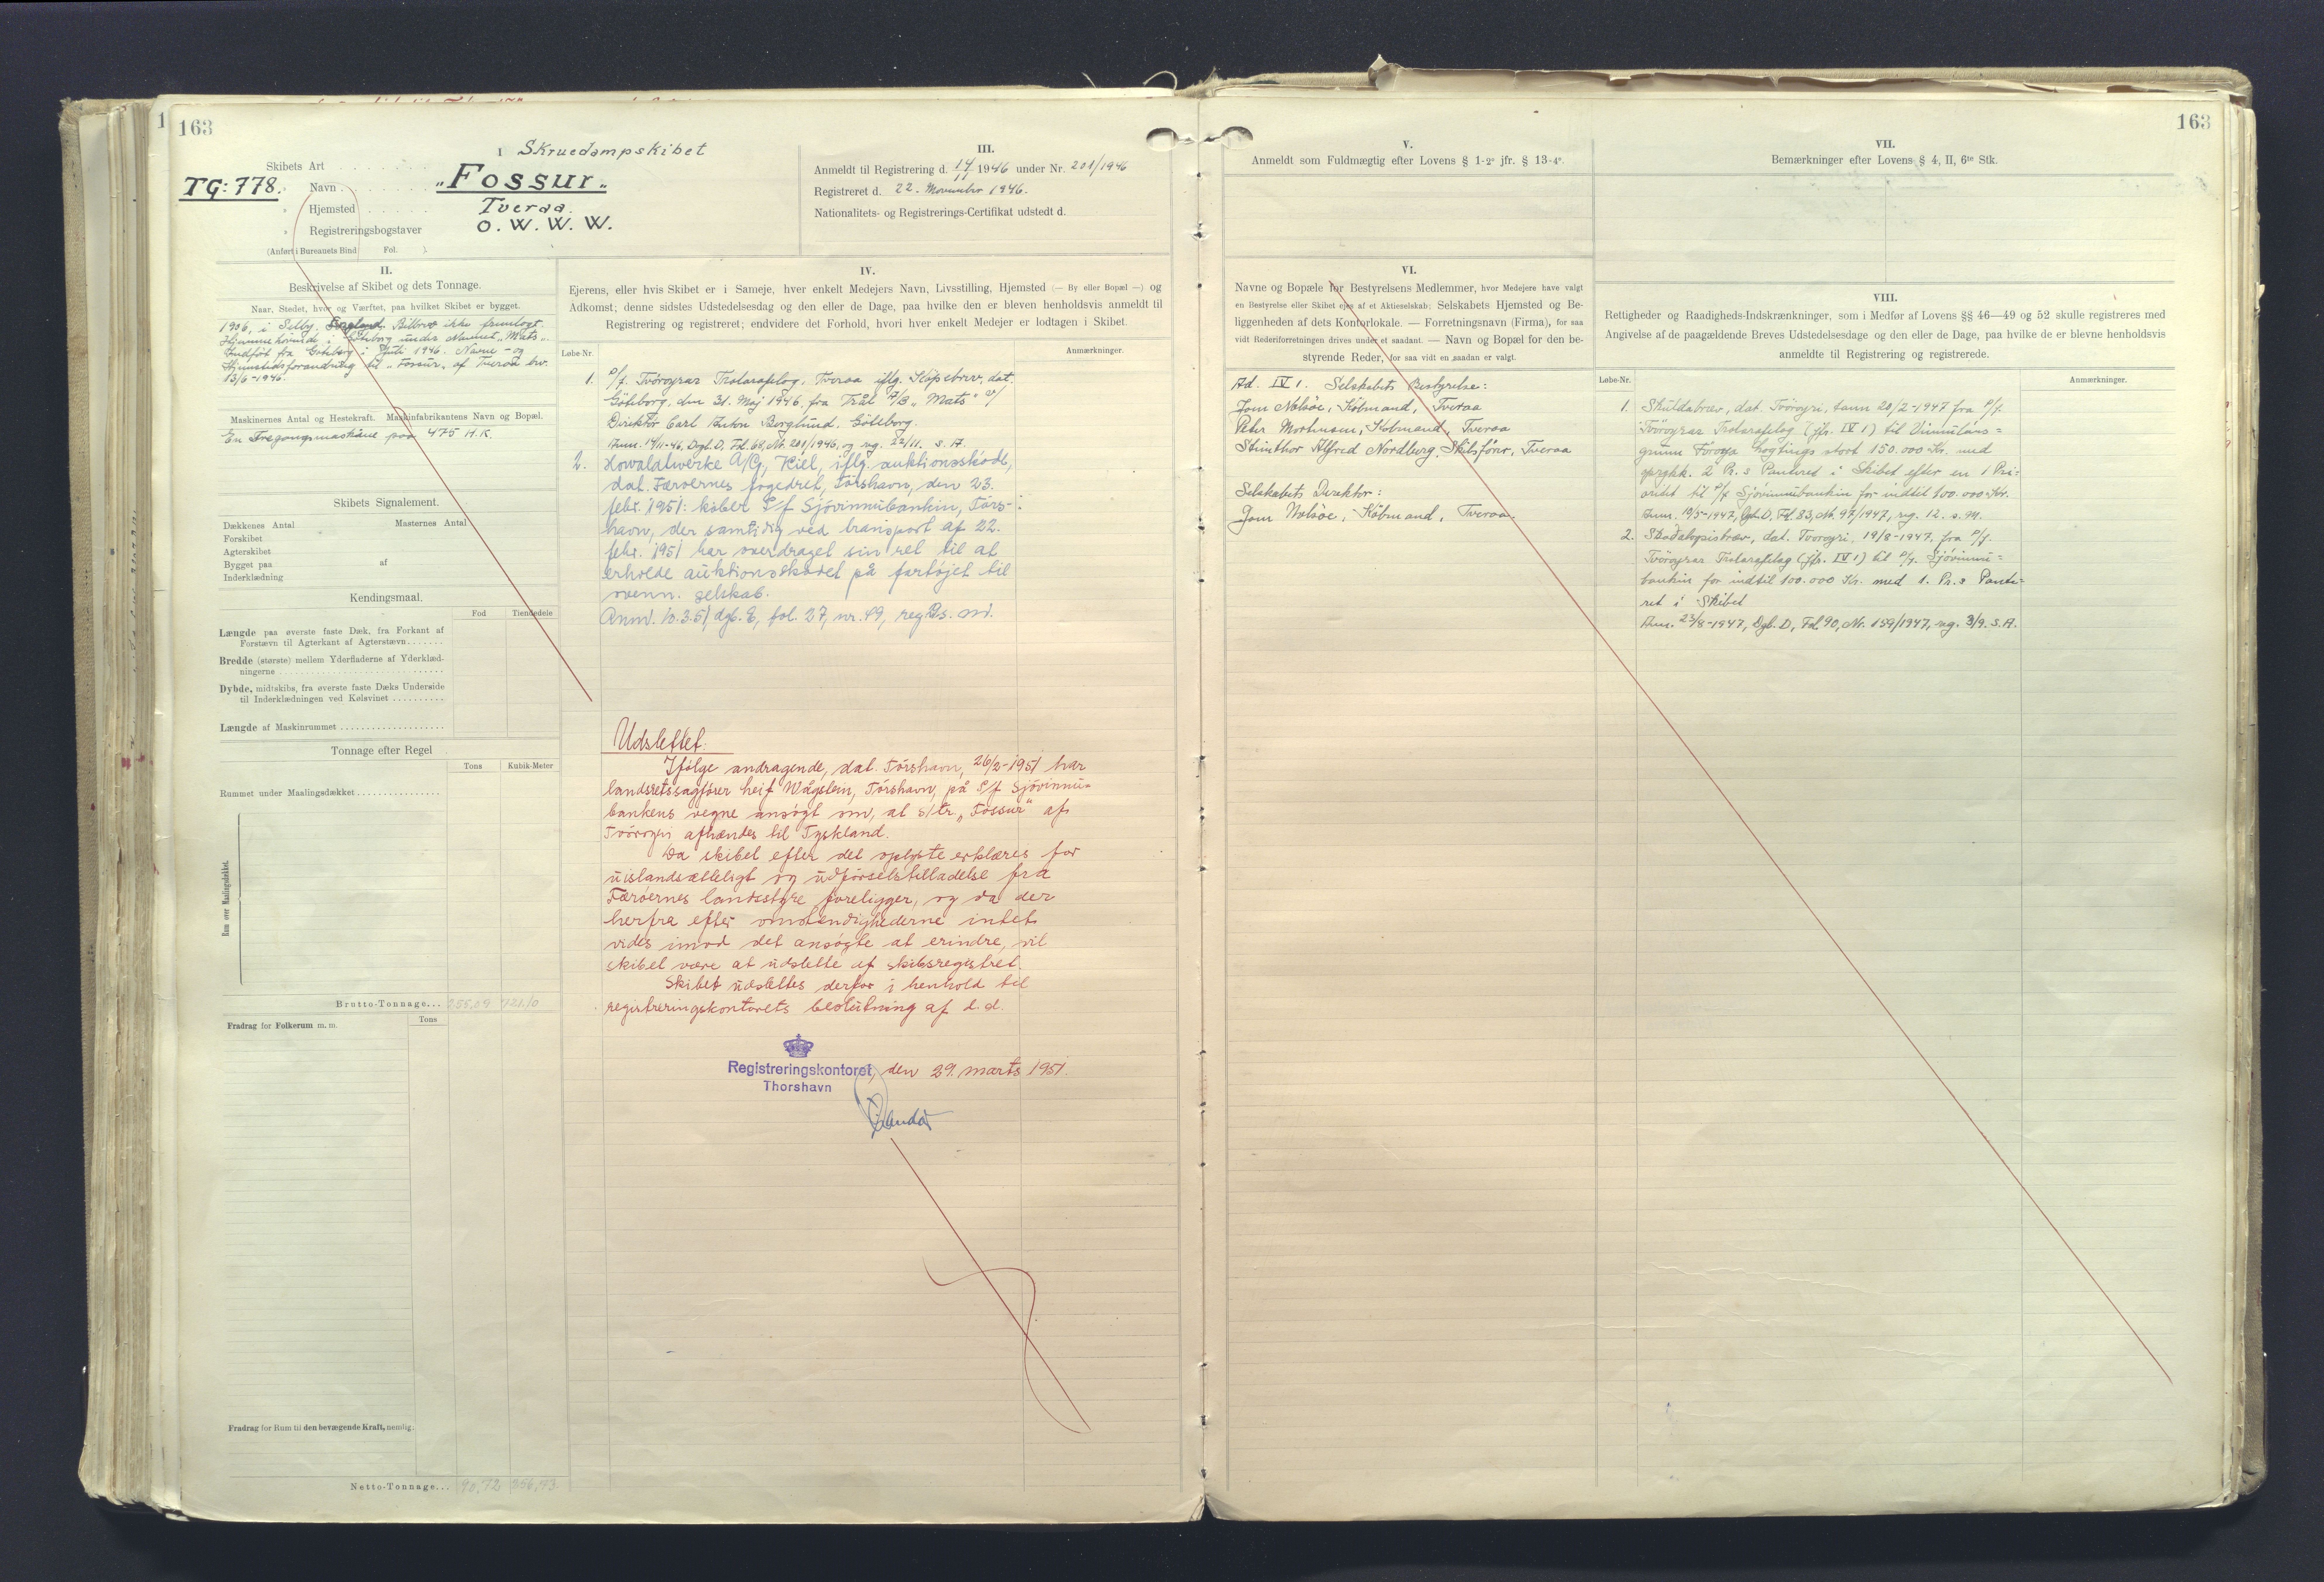 163
I
Skruedampskibet
Skibets Art
TG: 778.
Navn
„Fossur„
Hjemsted
Tveraa.
Registreringsbogstaver
O. W. W. W.
(Anført i Bureauets Bind Fol. ).
III.
Anmeldt til Registrering d. 14/11 1946 under Nr. 201/1946
Registreret d. 22. November 1946.
Nationalitets- og Registrerings-Certifikat udstedt d.
II.
Beskrivelse af Skibet og dets Tonnage.
Naar, Stedet, hvor og Værftet, paa hvilket Skibet er bygget.
1936, i Selby, England. Bilbrev ikke fremlagt.
Hjemmehörende i Göteborg under Navnet „Mats„
Indfört fra Göteborg i Juli 1946. Navne- og
Hjemstedsforandring til „Fossur„ af Tveraa bev.
13/6-1946.
Maskinernes Antal og Hestekraft. Maskinfabrikantens Navn og Bopæl.
En Tregangsmaskine paa 475 H.K.
Skibets Signalement.
Dækkenes Antal
Masternes Antal
Forskibet
Agterskibet
Bygget paa af
Inderklædning
Kendingsmaal.
Fod Tiendedele
Længde paa øverste faste Dæk, fra Forkant af
Forstævn til Agterkant af Agterstævn
Bredde (største) mellem Yderfladerne af Yderklæd-
ningerne
Dybde, midtskibs, fra øverste faste Dæks Underside
til Inderklædningen ved Kølsvinet
Længde af Maskinrummet
Tonnage efter Regel
Tons Kubik-Meter
Rummet under Maalingsdækket
Rum over Maalingsdækket.
Brutto-Tonnage... 255,09 721,10
Fradrag for Folkerum m. m.
Tons
Fradrag for Rum til den bevægende Kraft, nemlig.
Netto-Tonnage... 90,72 256,43
IV.
Ejerens, eller hvis Skibet er i Sameje, hver enkelt Medejers Navn, Livsstilling, Hjemsted (— By eller Bopæl —) og
Adkomst; denne sidstes Udstedelsesdag og den eller de Dage, paa hvilke den er bleven henholdsvis anmeldt til
Registrering og registreret; endvidere det Forhold, hvori hver enkelt Medejer er lodtagen i Skibet.
Løbe-Nr.
Anmærkninger.
1. P/f. Tvöroyrar Trolarafelag, Tveraa iflg. Köpebrev, dat.
Göteborg, den 31. Maj 1946, fra Trål A/B „Mats" v/
Direktör Carl Anton Berglund, Göteborg.
Anm. 14/11-46, Dgb. D, Fol. 68, Nr. 201/1946, og reg. 22/11. S. A.
2. Howaldtwerke A/G, Kiel, iflg. auktionsskøde,
dat. Færøernes fogedret, Tórshavn, den 23.
febr. 1951. køber P/f Sjóvinnubankin, Tórs-
havn, der samtidig ved transport af 22.
febr. 1951 har overdraget sin ret til at
erholde auktionsskødet på fartøjet til
ovenn. selskab.
Anm. 10.3.51, dgb. E, fol. 27, nr. 49, reg. s. m.
Udslettet:
Ifølge andragende, dat. Tórshavn, 26/2-1951 har
landsretssagfører Leif Wågstein, Tórshavn, på P/f Sjóvinnu-
bankens vegne ansøgt om, at s/tr. „Fossur" af
Tvøroyri afhændes til Tyskland.
Da skibet efter det oplyste erklæres for
uistandsætteligt og udførselstilladelse fra
Færøernes landsstyre foreligger, og da der
herfra efter omstændighederne intet
vides imod det ansøgte at erindre, vil
skibet være at udslette af skibsregistret.
Skibet udslettes derfor i henhold til
registreringskontorets beslutning af d. d.
Registreringskontoret, den 29. marts 1951.
Thorshavn
163
V.
Anmeldt som Fuldmægtig efter Lovens § 1-2° jfr. § 13-4°.
VI.
Navne og Bopæle for Bestyrelsens Medlemmer, hvor Medejere have valgt
en Bestyrelse eller Skibet ejes af et Aktieselskab; Selskabets Hjemsted og Be-
liggenheden af dets Kontorlokale. — Forretningsnavn (Firma), for saa
vidt Rederiforretningen drives under et saadant. — Navn og Bopæl for den be-
styrende Reder, for saa vidt en saadan er valgt.
Ad. IV 1. Selskabets Bestyrelse:
Jom Nolsöe, Köbmand, Tveraa
Peter Mortensen, Köbmand, Tveraa
Steinthor Alfred Nordberg, Skibsförer, Tveraa
Selskabets Direktör:
Jom Nolsöe, Köbmand, Tveraa.
VII.
Bemærkninger efter Lovens § 4, II, 6te Stk.
VIII.
Rettigheder og Raadigheds-Indskrænkninger, som i Medfør af Lovens §§ 46—49 og 52 skulle registreres med
Angivelse af de paagældende Breves Udstedelsesdage og den eller de Dage, paa hvilke de er blevne henholdsvis
anmeldte til Registrering og registrerede.
Løbe-Nr.
Anmærkninger.
1. Skuldabræv, dat. Tvöroyri, tann 20/2-1947 fra P/f.
Tvöroyrar Trolarafelag (jfr. IV 1) til Vinnuláns-
grunn Föroya Løgtings stort 150.000 Kr. med
oprykk. 2 Pr.s Panteret i Skibet efter en 1 Pri-
oritet til P/f Sjóvinnubankin for indtil 100.000 Kr.
Anm. 10/5-1947, Dgb. D, Fol. 83, Nr. 97/1947, reg. 12. s. M.
2. Skadaloysisbræv, dat. Tvöroyri, 19/8-1947, fra P/f.
Tvöroyrar Trolarafelag (jfr. IV 1) til P/f. Sjóvinnu-
bankin for indtil 100.000 Kr. med 1. Pr.s Pante-
ret i Skibet
Anm. 23/8-1947, Dgb. D, Fol 90, Nr. 159/1947, reg. 3/9. S. A.